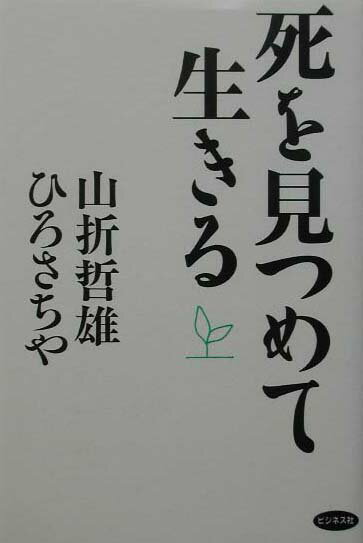 死を見つめて
生きる
山折哲雄
ひろさちや
ビジネス社